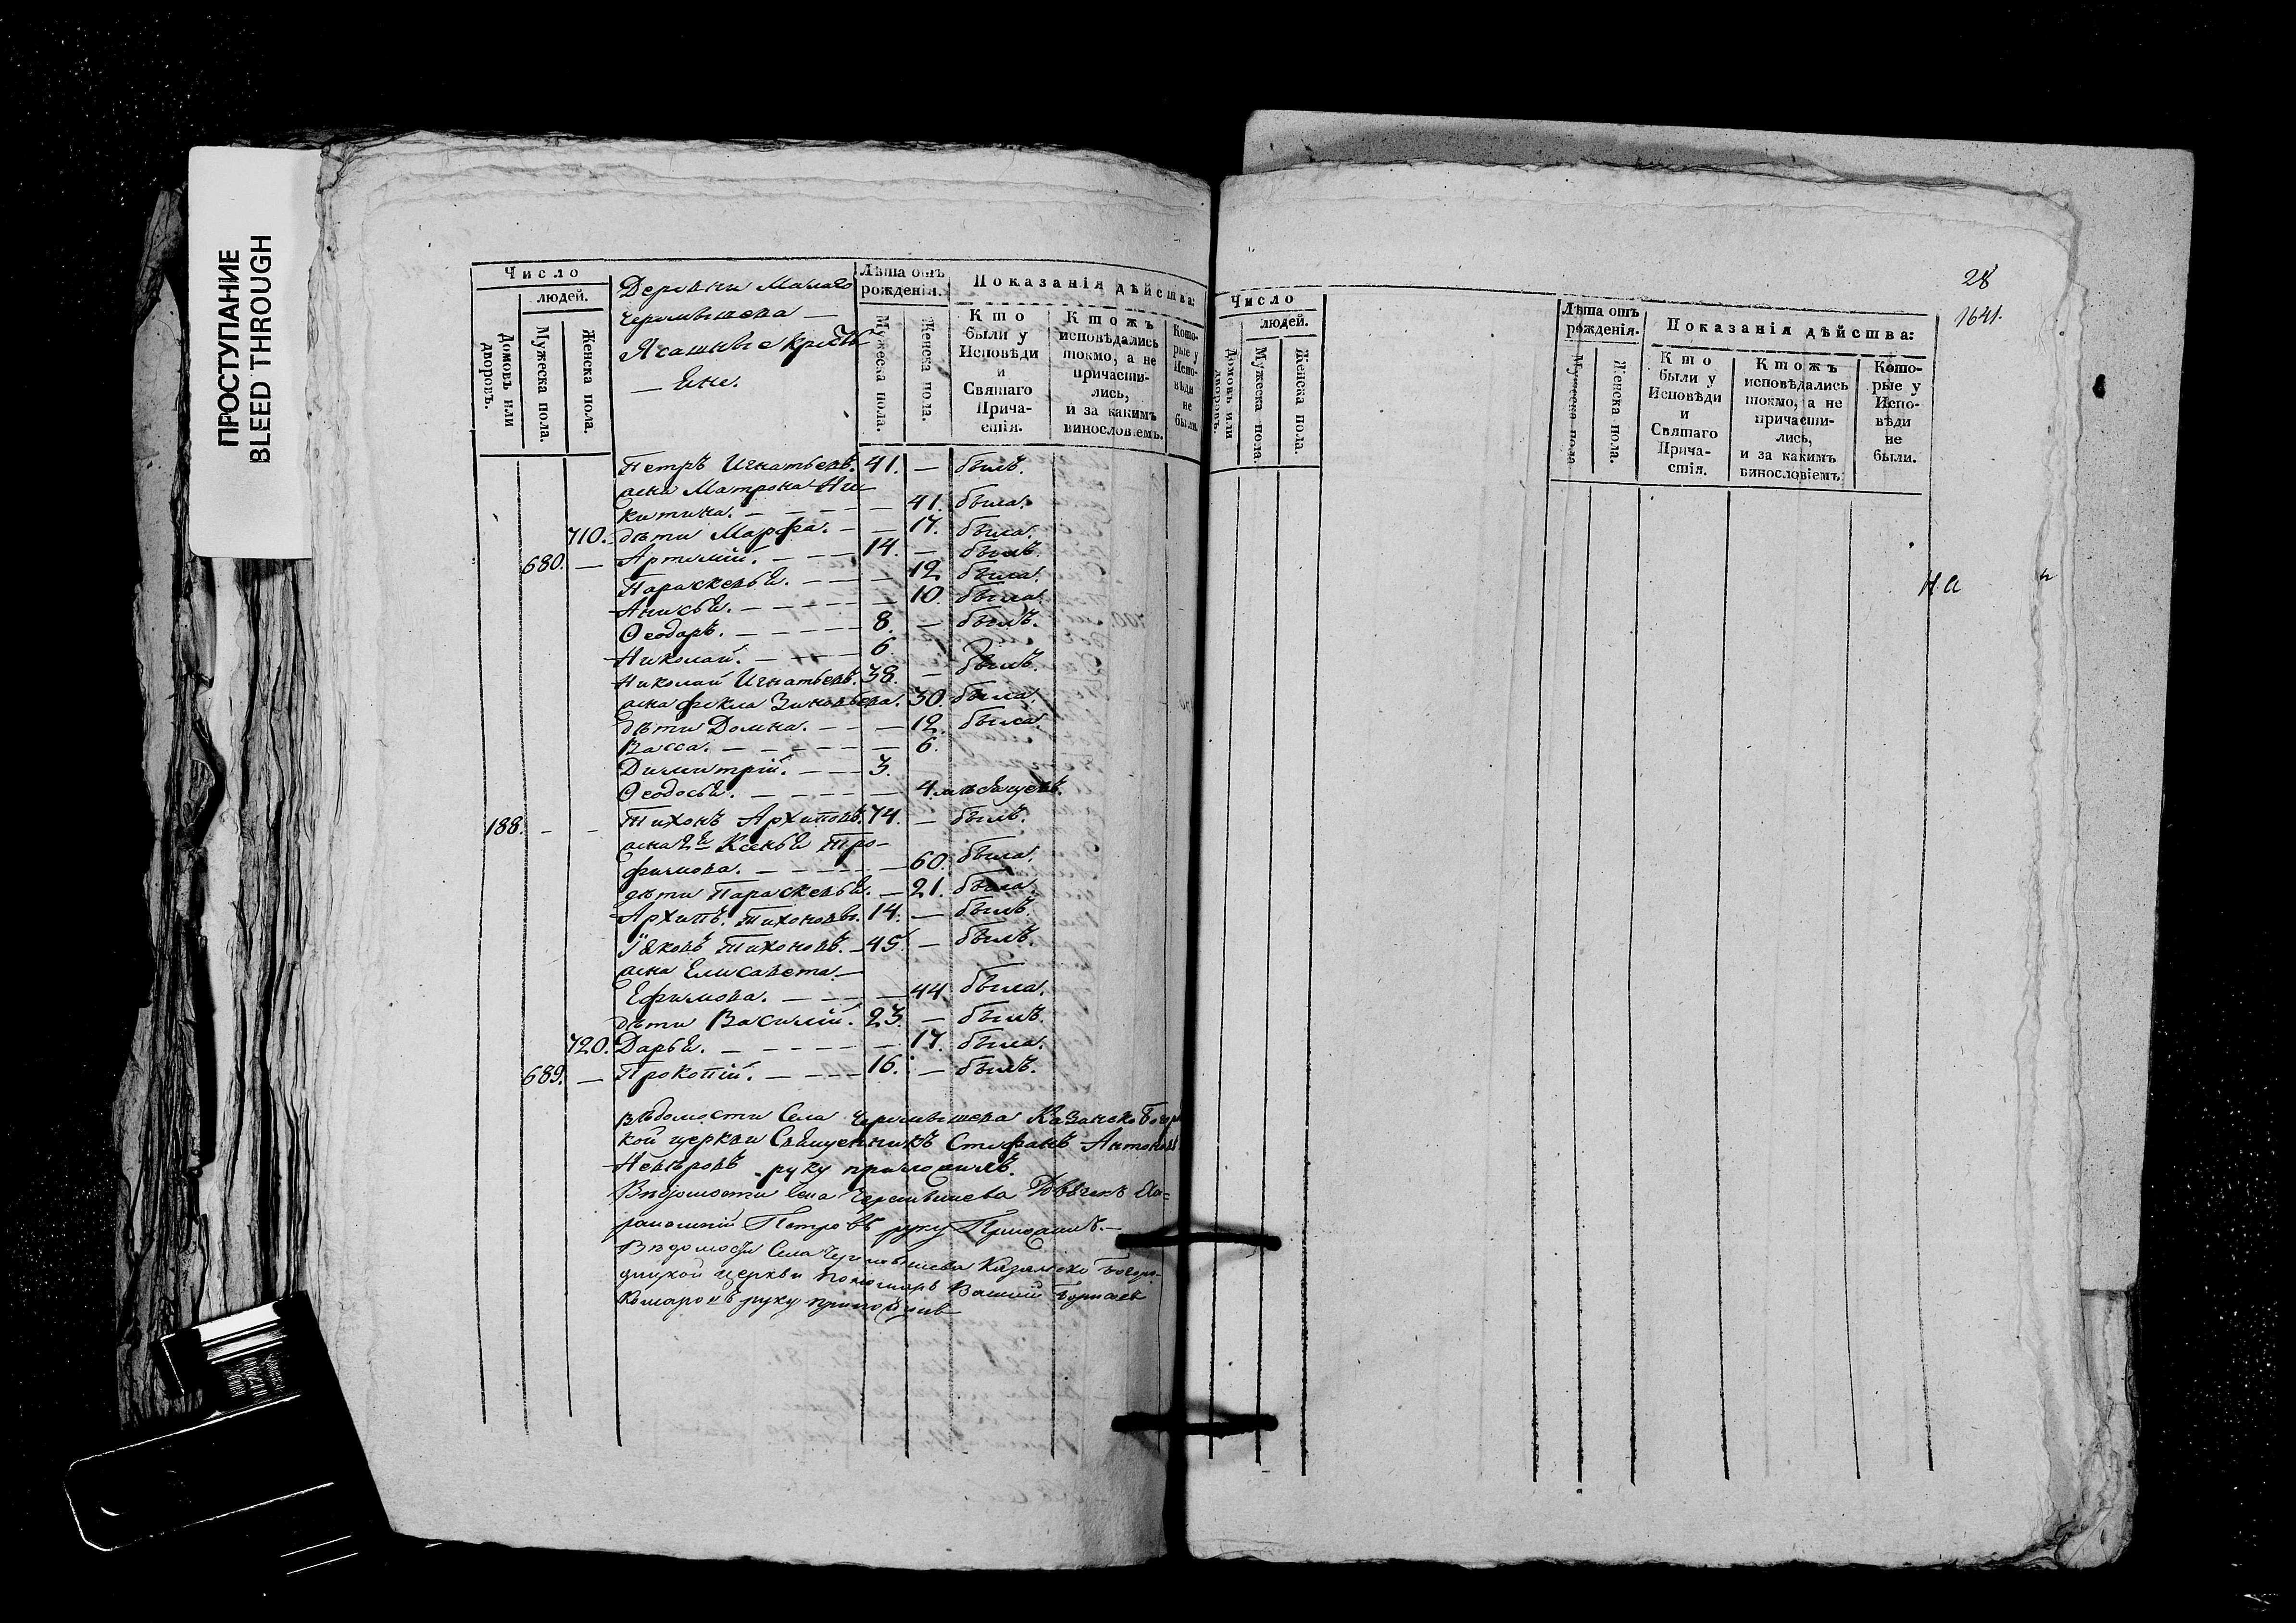 ПРОСТУПАНИЕ
BLEED THROUGH
Число
людей.
Домовъ или дворовъ.
Мужеска пола.
Женска пола.
Деревни Малаго
Черемышева —
Ясашные крестья
— яне.
Лѣта отъ рожденія.
Мужеска пола.
Женска пола.
Показанія дѣйства:
Кто были у Исповѣди и Святаго Причастія.
Ктожъ исповѣдались токмо, а не причастились, и за какимъ винословіемъ.
Которые у Исповѣди не были.
Петръ Игнатьевъ. 41. — былъ.
жена Матрона Ни-
китина. — — — 41. была.
710. дѣти Марѳа. — — 17. была.
680. — Артемій. — — 14. — былъ.
Параскевья. — — — 12 была.
Анисья. — — — — 10. была.
Ѳеодоръ. — — — 8. — былъ.
Николай. — — — 6.
Николай Игнатьевъ. 38. — былъ.
жена Фекла Зиновьева. 30. была.
дѣти Домна. — — — 12. была.
Васса. — — — — 6.
Димитрій. — — — 3.
Ѳеодосья. — — — — 4. мѣсяцовъ.
188. — — Тихонъ Архиповъ. 74. — былъ.
жена 2я Ксенья Тро-
фимова. — — — — 60. была.
дѣти Параскевья. — 21. была.
Архипъ. Тихоновы. 14. — былъ.
Іяковъ Тихоновъ. — 45. — былъ.
жена Елисавета —
Ефимова. — — — 44. была.
дѣти Василій. 23. — былъ.
720. Дарья. — — — — 17. была.
689. — Прокопій. — — — 16. — былъ.
вѣдомости Села Черемышева Казанско Бого
кой церкви Священникъ Стефанъ Антоновъ
Невѣровъ руку приложилъ.
Вѣдомости Села Черемышева
Петровъ руку Приложилъ. —
Вѣдомости Села Черемышева Казанско Богоро-
дицкой церкви пономарь Василій Борисовъ
руку приложилъ
Число
людей.
Домовъ или дворовъ.
Мужеска пола.
Женска пола.
Лѣта отъ рожденія.
Мужеска пола
Женска пола.
Показанія дѣйства:
Кто были у Исповѣди и Святаго Причастія.
Ктожъ исповѣдались токмо, а не причастились, и за какимъ винословіемъ
Которые у Исповѣди не были.
28
1641.